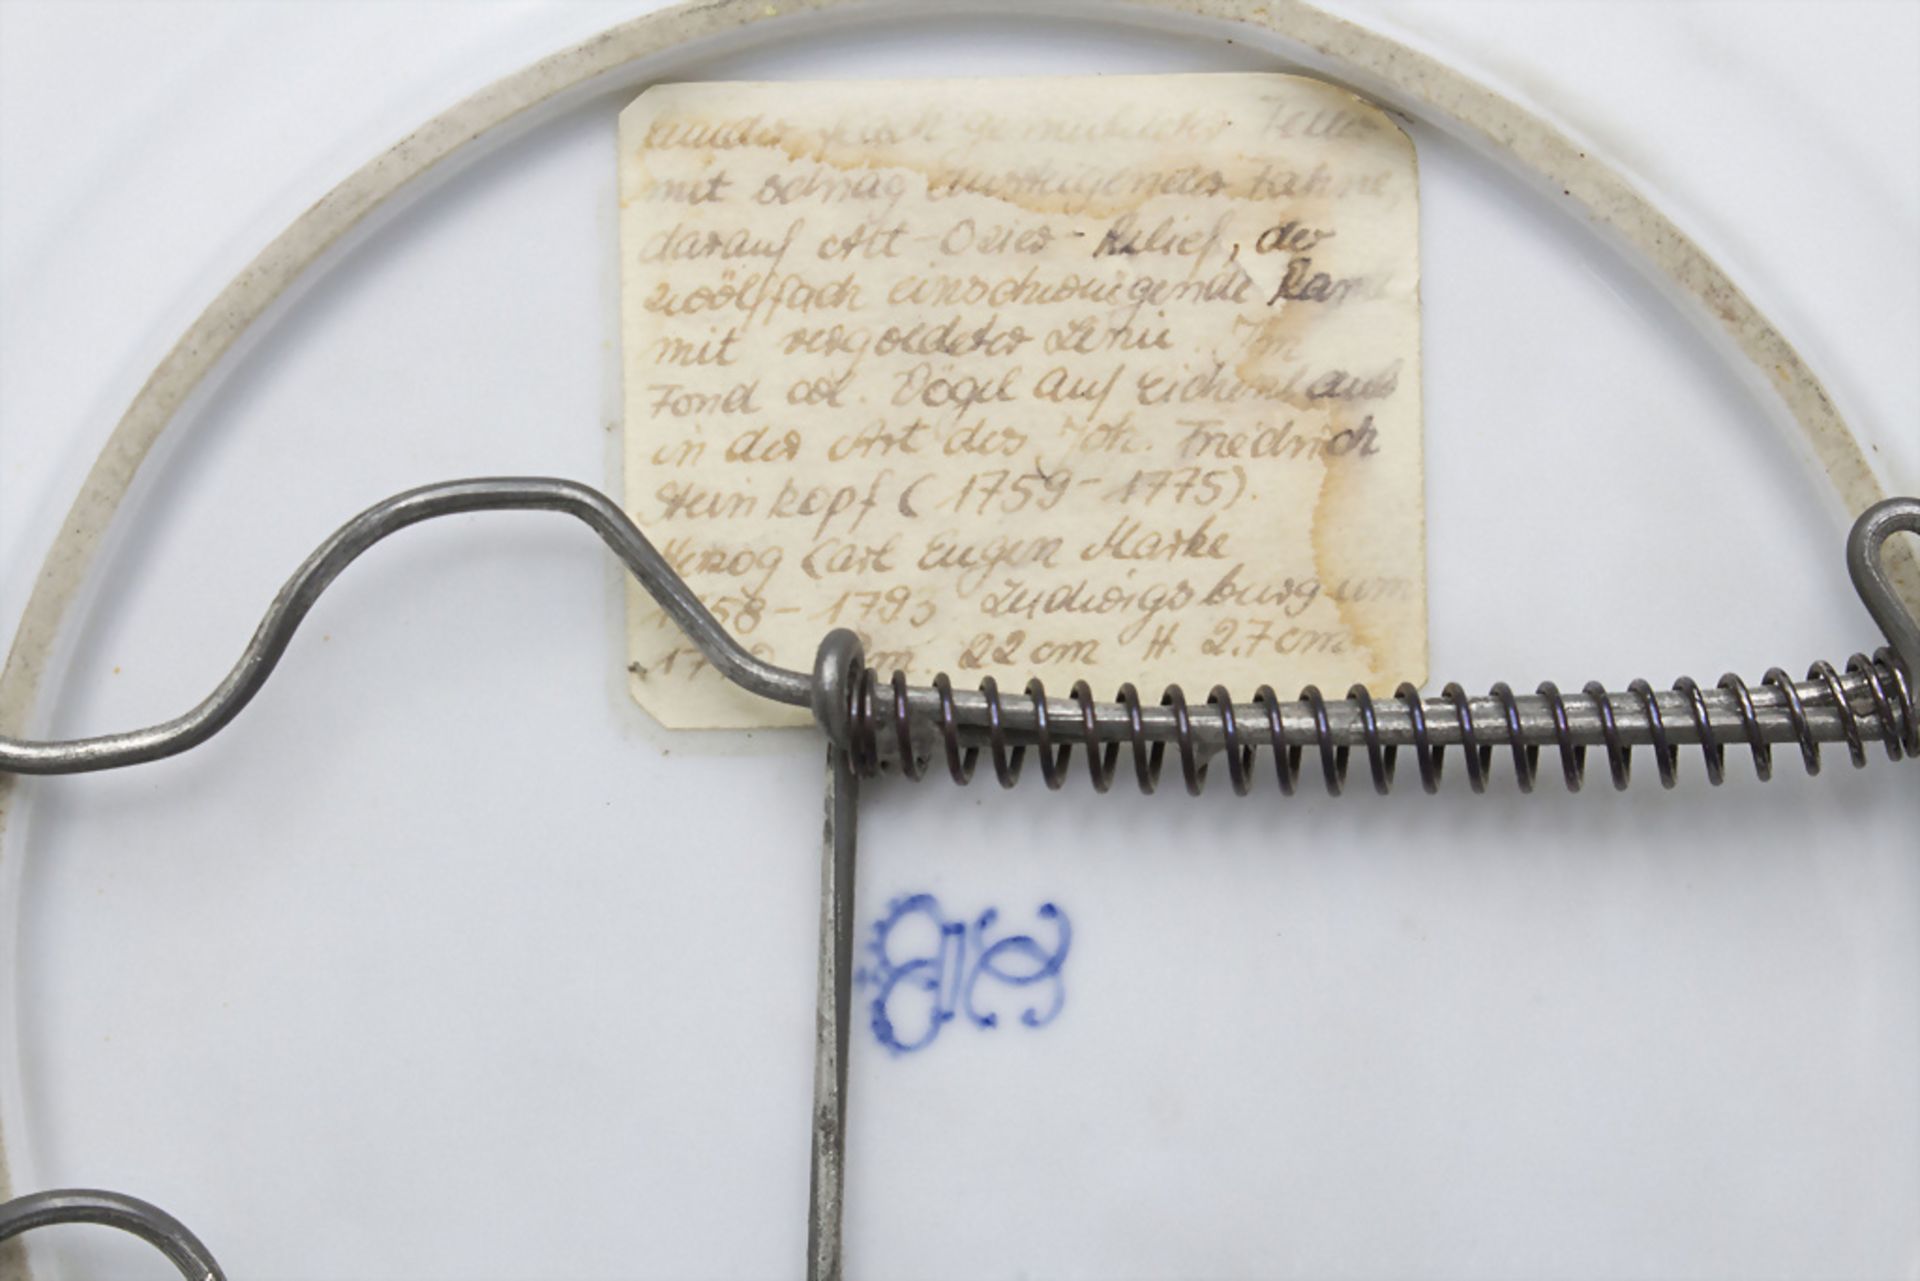 runder, flach gemuldeter Teller
mit schräg aufsteigender Fahne,
darauf Alt-Ozier-Relief, der
zwölffach einschwingende Rand
mit vergoldeter Linie. Im
Fond col. Vögel auf Eichenlaub
in der Art des Joh. Friedrich
Steinkopf (1759-1775).
Herzog Carl Eugen Marke
1758-1793 Ludwigsburg um
22 cm H. 2.7 cm